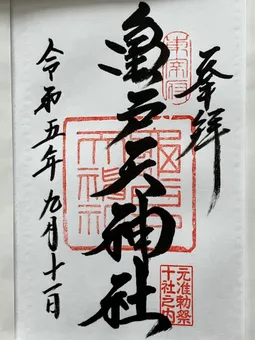 奉拝
東宰府
亀戸天神社
令和五年九月十一日
元准勅祭
十社之内